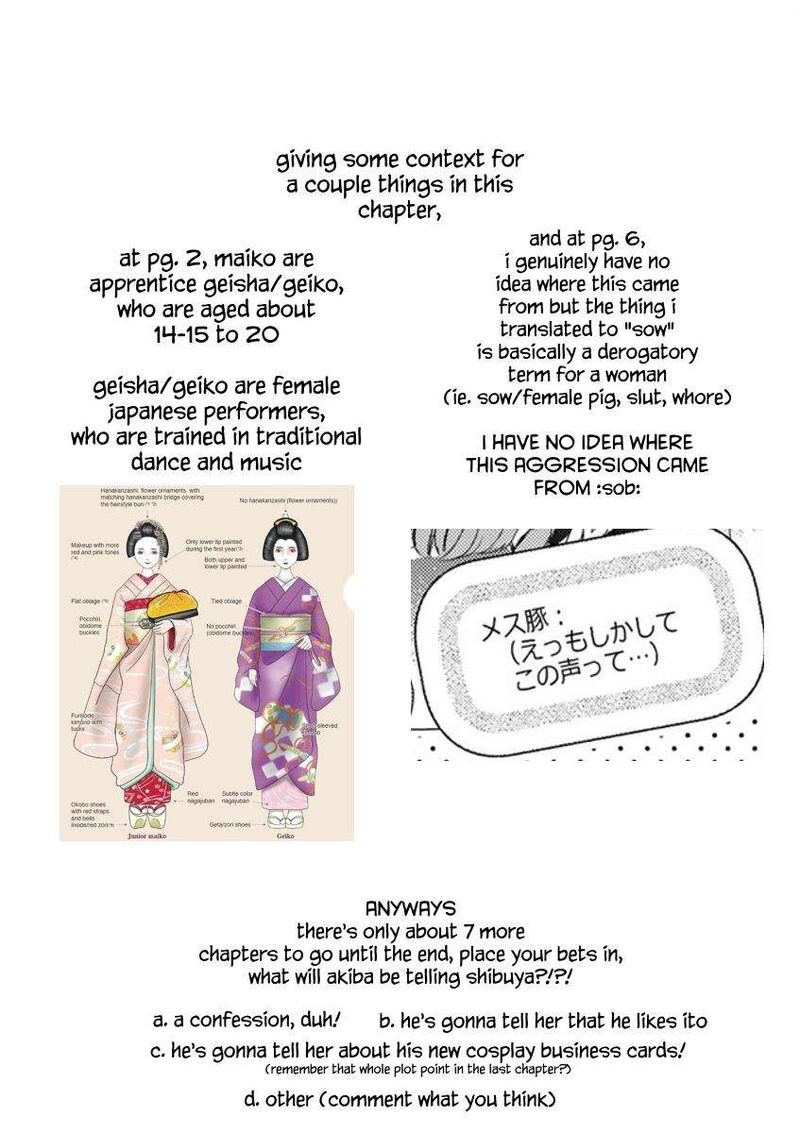 giving some context for
a couple things in this
chapter,
at pg. 2, maiko are
apprentice geisha/geiko,
who are aged about
14-15 to 20
geisha/geiko are female
japanese performers,
who are trained in traditional
dance and music
Hanakanzashi, flower ornaments with
matching hanakanzashi bridge covering
the hairstyle bun
No hanakanzashi (flower ornaments)
Makeup with more
red and pink tones
Only lower lip painted
during the first year
Both upper and
lower lip painted
Flat obiage
Tied obiage
Pocchiri,
obidome
buckles
No pocchiri
(obidome buckles)
Furisode
kimono with
tucks
Okobo shoes
with red straps
and bells
inside/red
Red
nagajuban
Subtle color
nagajuban
Geta/zori shoes
Junior maiko
Geiko
and at pg. 6,
i genuinely have no
idea where this came
from but the thing i
translated to "sow"
is basically a derogatory
term for a woman
(ie. sow/female pig, slut, whore)
I HAVE NO IDEA WHERE
THIS AGGRESSION CAME
FROM :sob:
メス豚：
(えっもしかして
この声って…)
ANYWAYS
there's only about 7 more
chapters to go until the end, place your bets in,
what will akiba be telling shibuya?!?!
a. a confession, duh!
b. he's gonna tell her that he likes ito
c. he's gonna tell her about his new cosplay business cards!
(remember that whole plot point in the last chapter?)
d. other (comment what you think)